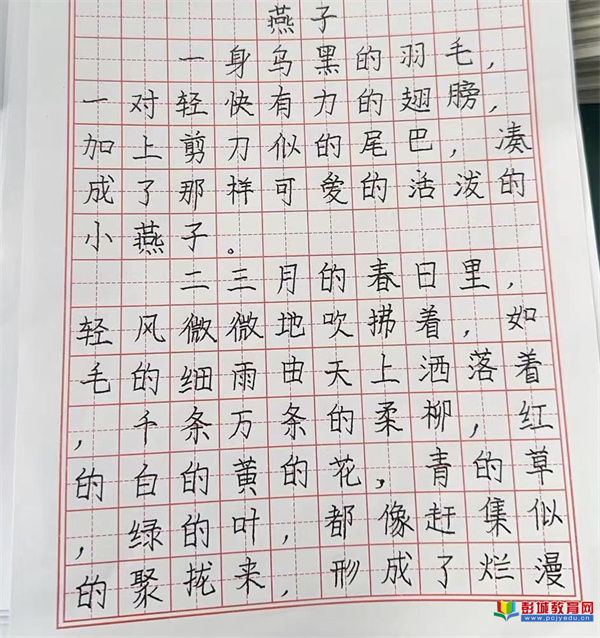 燕子
一身乌黑的羽毛，
一对轻快有力的翅膀，
加上剪刀似的尾巴，凑
成了那样可爱的活泼的
小燕子。
二三月的春日里，
轻风微微地吹拂着，如
毛的细雨由天上洒落着
，千条万条的柔柳，红
的白的黄的花，青的草
，绿的叶，都像赶集似
的聚拢来，形成了烂漫
彭城教育网
www.pcjyedu.cn